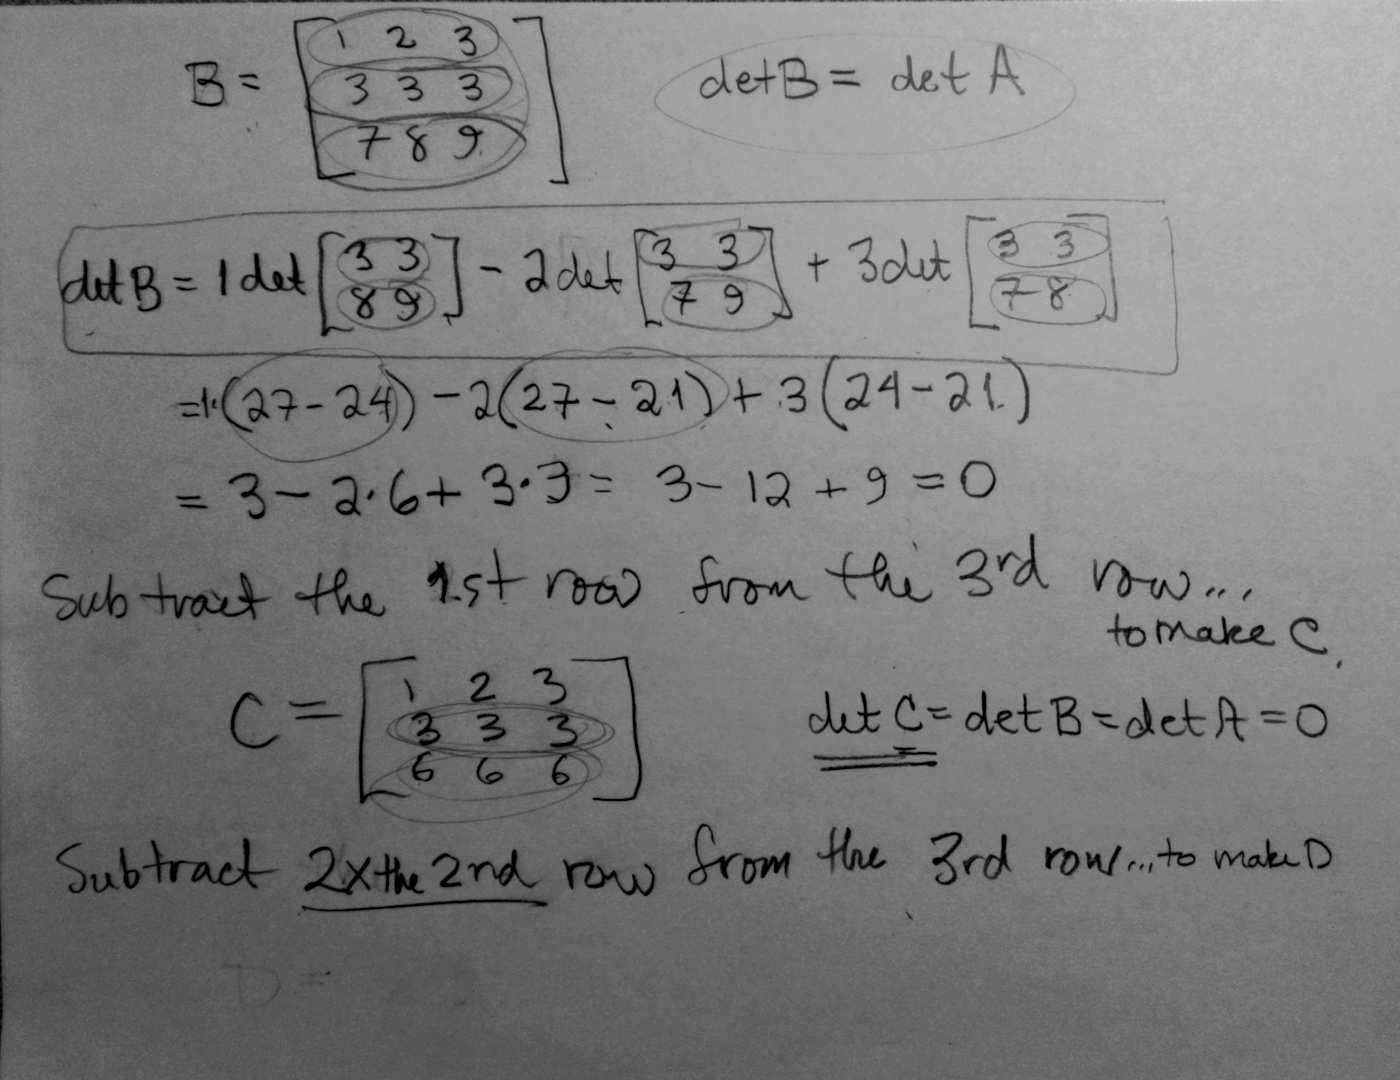 B = [ 1 2 3
3 3 3
7 8 9 ]
det B = det A
det B = 1 det [ 3 3
8 9 ] - 2 det [ 3 3
7 9 ] + 3 det [ 3 3
7 8 ]
= 1·(27 - 24) - 2(27 - 21) + 3(24 - 21)
= 3 - 2·6 + 3·3 = 3 - 12 + 9 = 0
Subtract the 1st row from the 3rd row...
to make C.
C = [ 1 2 3
3 3 3
6 6 6 ]
det C = det B = det A = 0
Subtract 2x the 2nd row from the 3rd row... to make D
D =